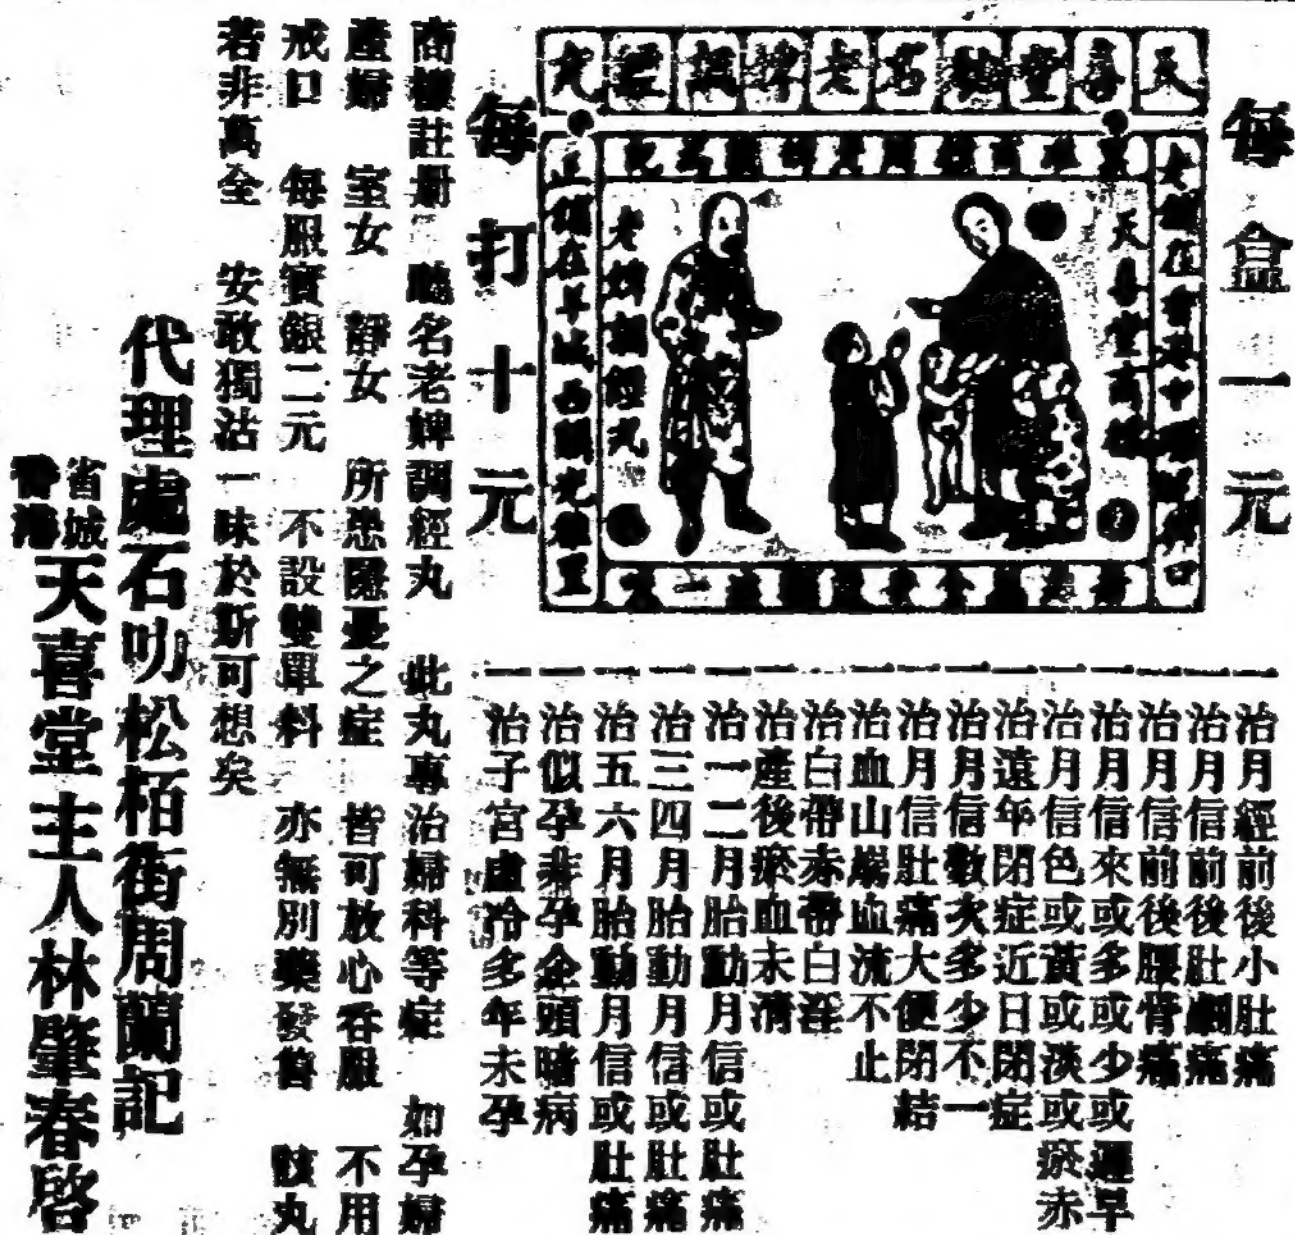 每盒一元
天喜堂馳名老牌調經丸
天喜堂商標
老牌調經丸
正舖在羊城西關光雅里
每打十元
一治月經前後小肚痛
一治月信前後肚痛
一治月信前後腰骨痛
一治月信來或多或少或遲早
一治月信色或黃或淡或瘀赤
一治遠年閉症近日閉症
一治月信數次多少不一
一治月信肚痛大便閉結
一治血山崩血流不止
一治白帶赤帶白淫
一治產後瘀血未清
一治一二月胎動月信或肚痛
一治三四月胎動月信或肚痛
一治五六月胎動月信或肚痛
一治似孕非孕企頭暗病
一治子宮虛冷多年未孕
商標註册 馳名老牌調經丸 此丸專治婦科等症 如孕婦
產婦 室女 靜女 所患隱憂之症 皆可放心吞服 不用
戒口 每服實銀二元 不設雙單料 亦無別藥發售 該丸
若非萬全 安敢獨沽一味於斯可想矣
代理處石叻松栢街周蘭記
省城
香港
天喜堂主人林肇春啓